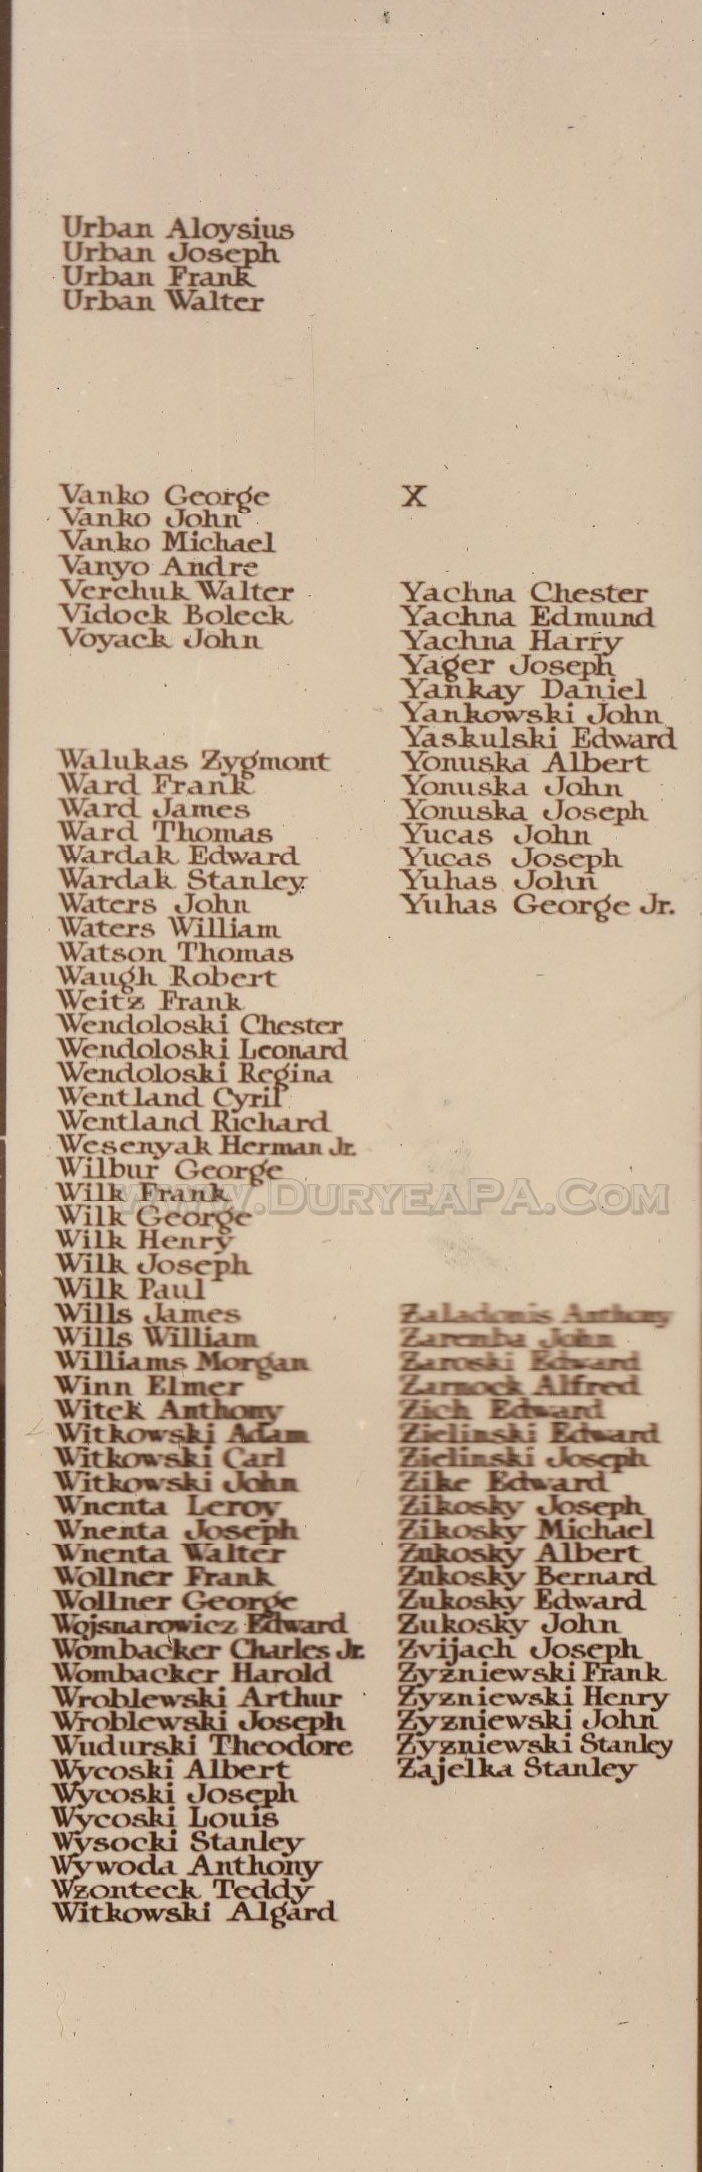 Urban Aloysius
Urban Joseph
Urban Frank
Urban Walter
Vanko George
Vanko John
Vanko Michael
Vanyo Andre
Verchuk Walter
Vidock Boleck
Voyack John
Walukas Zygmont
Ward Frank
Ward James
Ward Thomas
Wardak Edward
Wardak Stanley
Waters John
Waters William
Watson Thomas
Waugh Robert
Weitz Frank
Wendoloski Chester
Wendoloski Leonard
Wendoloski Regina
Wentland Cyril
Wentland Richard
Wesenyak Herman Jr.
Wilbur George
Wilk Frank
Wilk George
Wilk Henry
Wilk Joseph
Wilk Paul
Wills James
Wills William
Williams Morgan
Winn Elmer
Witek Anthony
Witkowski Adam
Witkowski Carl
Witkowski John
Wnenta Leroy
Wnenta Joseph
Wnenta Walter
Wollner Frank
Wollner George
Wojsnarowicz Edward
Wombacker Charles Jr.
Wombacker Harold
Wroblewski Arthur
Wroblewski Joseph
Wudurski Theodore
Wycoski Albert
Wycoski Joseph
Wycoski Louis
Wysocki Stanley
Wywoda Anthony
Wzonteck Teddy
Witkowski Algard
X
Yachna Chester
Yachna Edmund
Yachna Harry
Yager Joseph
Yankay Daniel
Yankowski John
Yaskulski Edward
Yonuska Albert
Yonuska John
Yonuska Joseph
Yucas John
Yucas Joseph
Yuhas John
Yuhas George Jr.
www.DuryeaPA.Com
Zaladonis Anthony
Zaremba John
Zaroski Edward
Zarnock Alfred
Zich Edward
Zielinski Edward
Zielinski Joseph
Zike Edward
Zikosky Joseph
Zikosky Michael
Zukosky Albert
Zukosky Bernard
Zukosky Edward
Zukosky John
Zvijach Joseph
Zyzniewski Frank
Zyzniewski Henry
Zyzniewski John
Zyzniewski Stanley
Zajelka Stanley